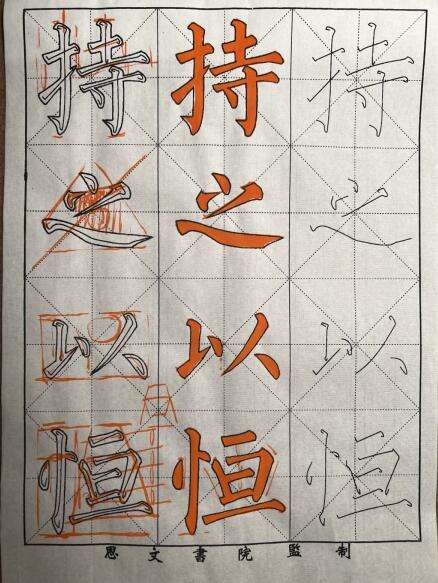 持持持
之之之
以以以
恒恒恒
思文書院監制